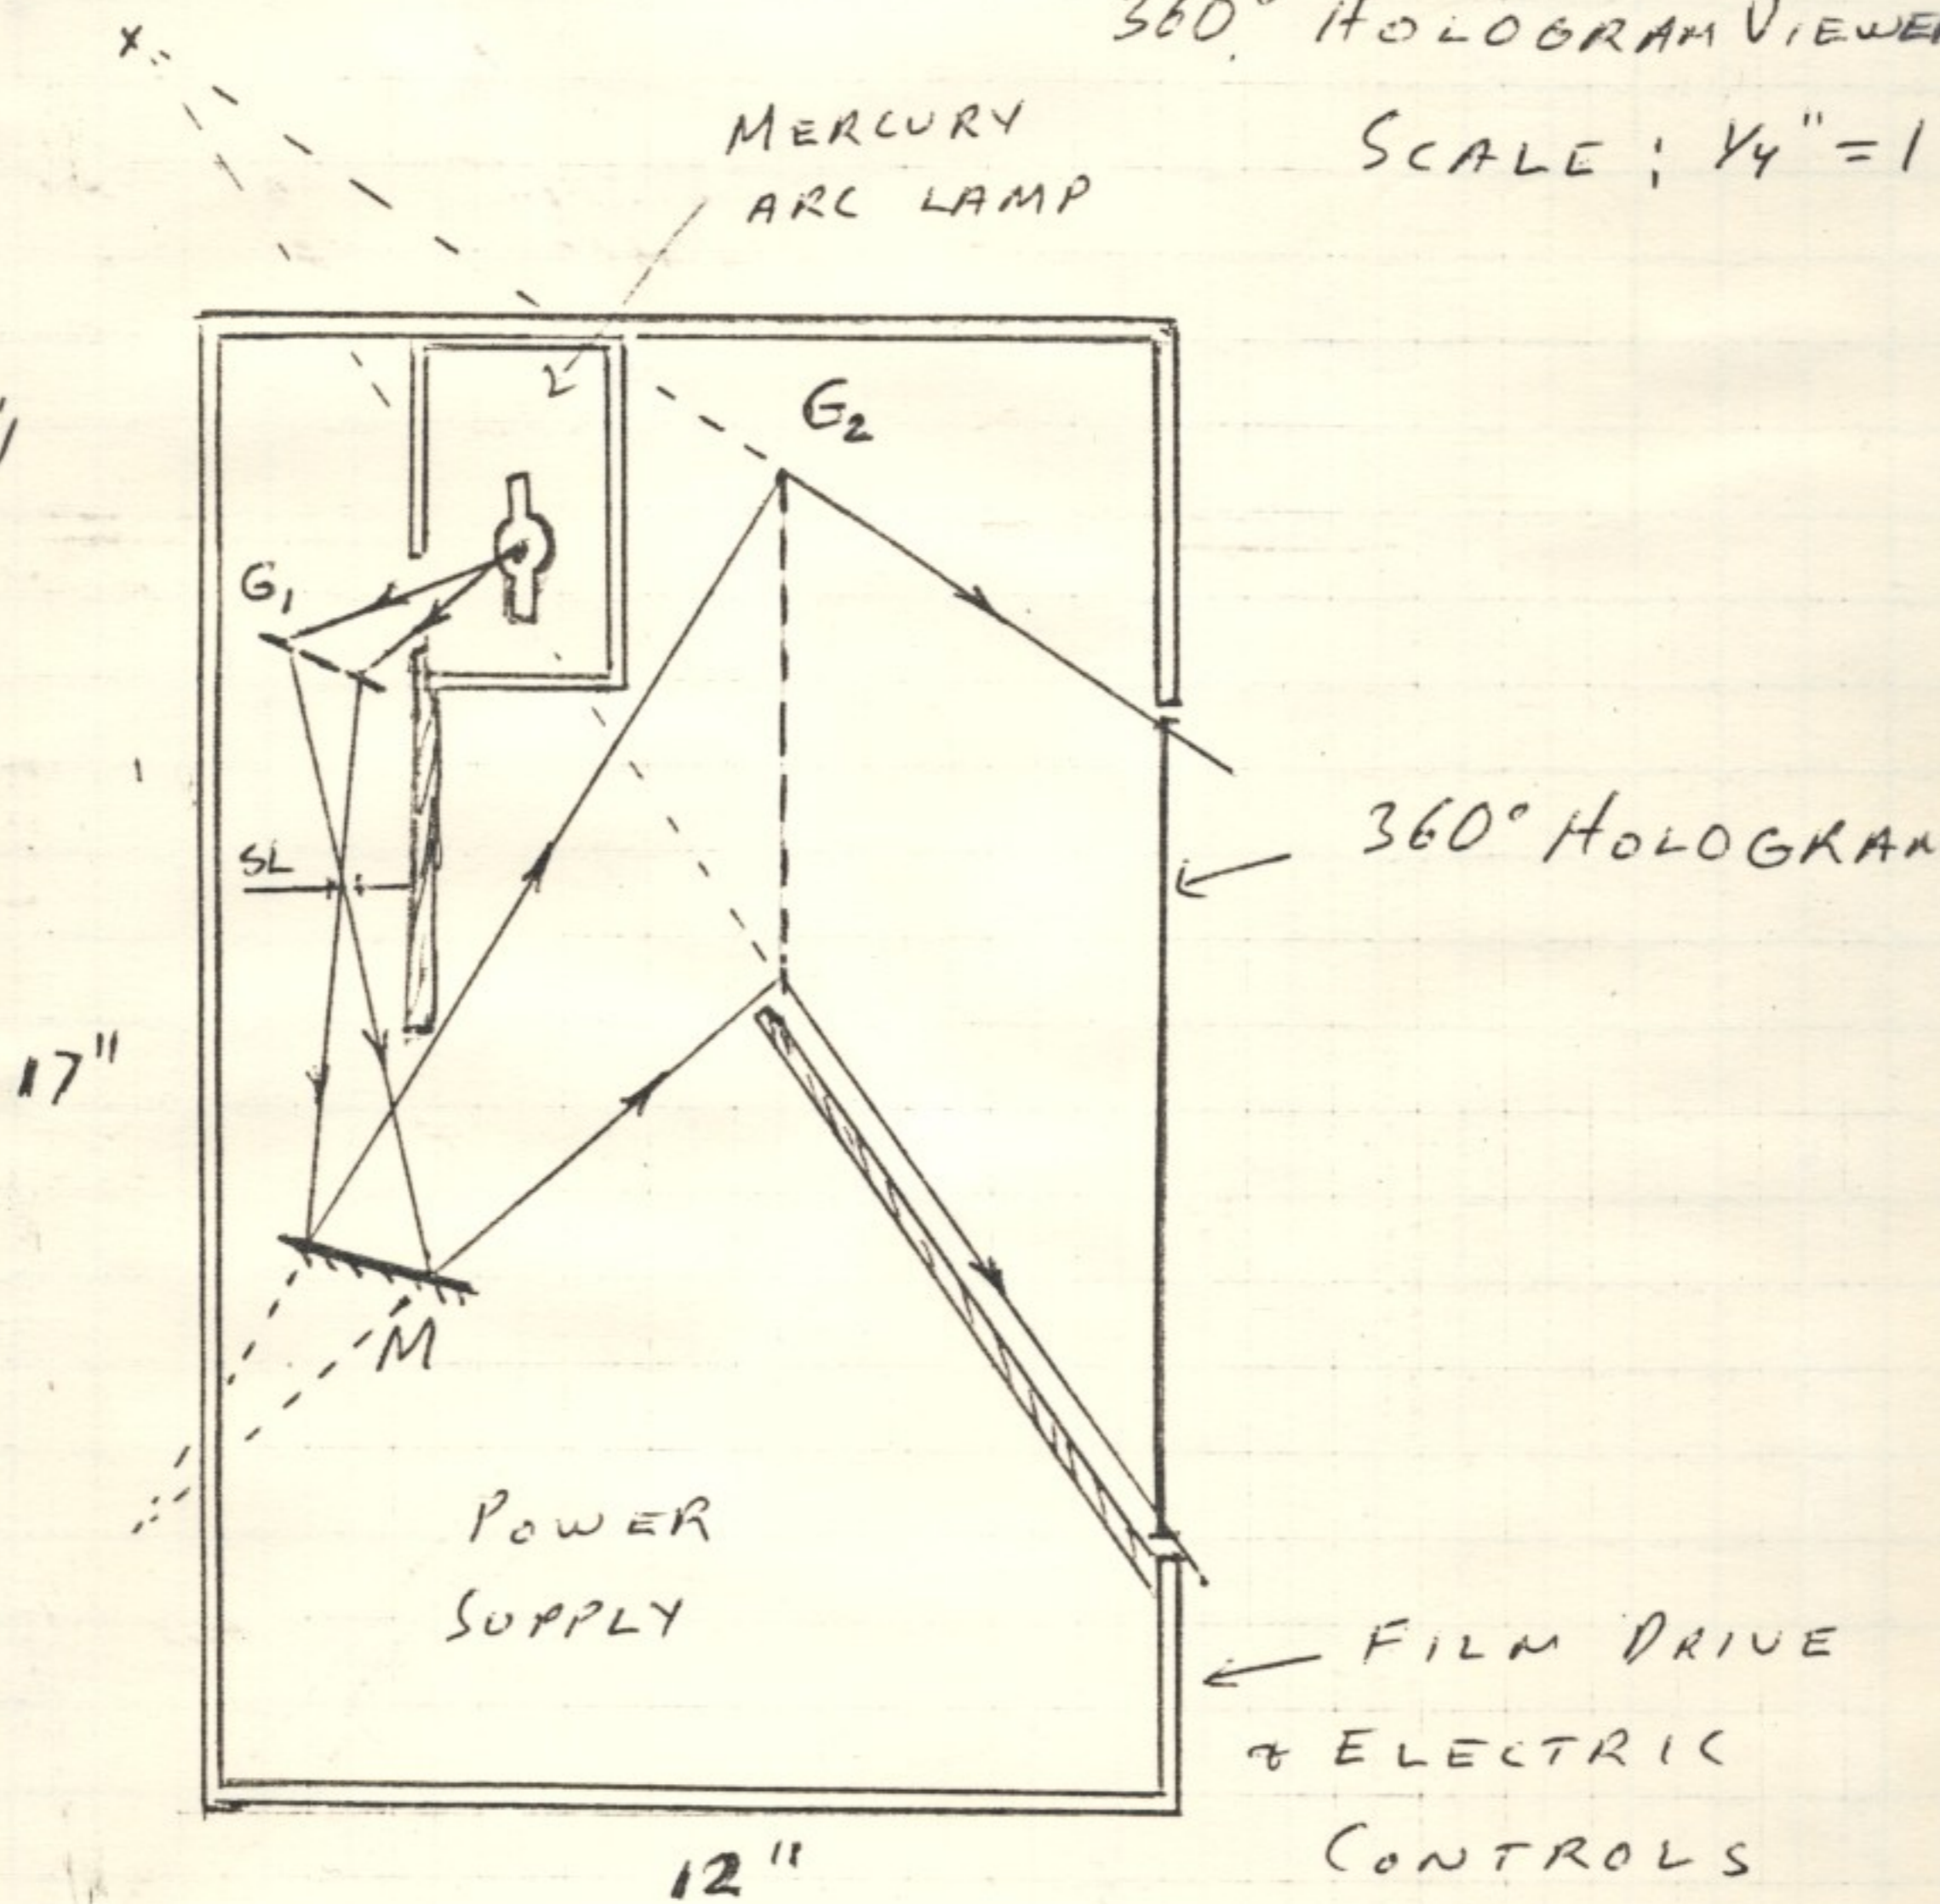 360° HOLOGRAM VIEWER
SCALE: 1/4" = 1
MERCURY
ARC LAMP
G2
G1
SL
360° HOLOGRAM
17"
M
POWER
SUPPLY
FILM DRIVE
& ELECTRIC
CONTROLS
12"